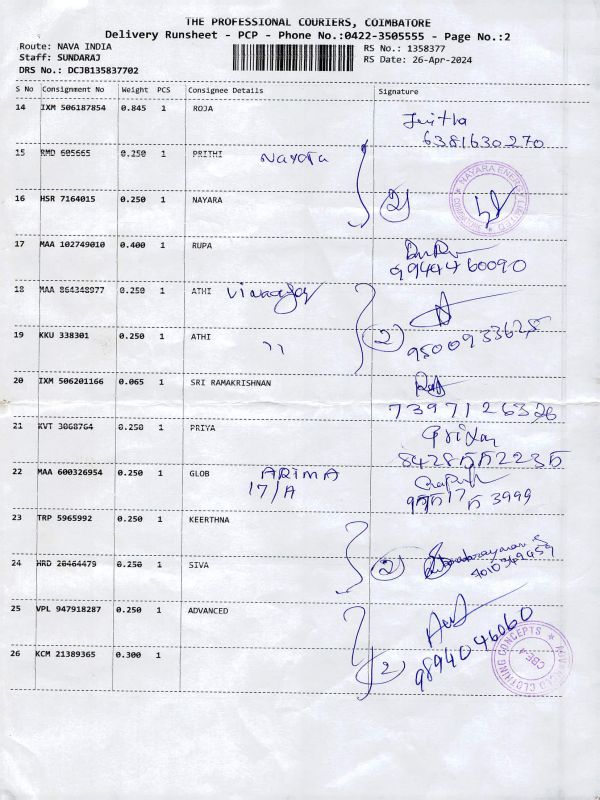 THE PROFESSIONAL COURIERS, COIMBATORE
Delivery Runsheet - PCP - Phone No.:0422-3505555 - Page No.:2
Route: NAVA INDIA
RS No.: 1358377
Staff: SUNDARAJ
RS Date: 26-Apr-2024
DRS No.: DCJB135837702
S No Consignment No Weight PCS Consignee Details Signature
14 IXM 506187854 0.845 1 ROJA
6381630270
15 RMD 605665 0.250 1 PRITHI Nayara
16 HSR 7164015 0.250 1 NAYARA 2
NAYARA ENERGY LIMITED
17 MAA 102749010 0.400 1 RUPA
9944460090
18 MAA 864348977 0.250 1 ATHI
19 KKU 338301 0.250 1 ATHI 11 2
9500933625
20 IXM 506201166 0.065 1 SRI RAMAKRISHNAN
7397126326
21 KVT 3068764 0.250 1 PRIYA
8428552235
22 MAA 600326954 0.250 1 GLOB ARIMA
17/A
23 TRP 5965992 0.250 1 KEERTHNA
24 HRD 20464479 0.250 1 SIVA 2
25 VPL 947918287 0.250 1 ADVANCED
9894046060
26 KCM 21389365 0.300 1 2
CLOTHING CONCEPTS
CBE-4